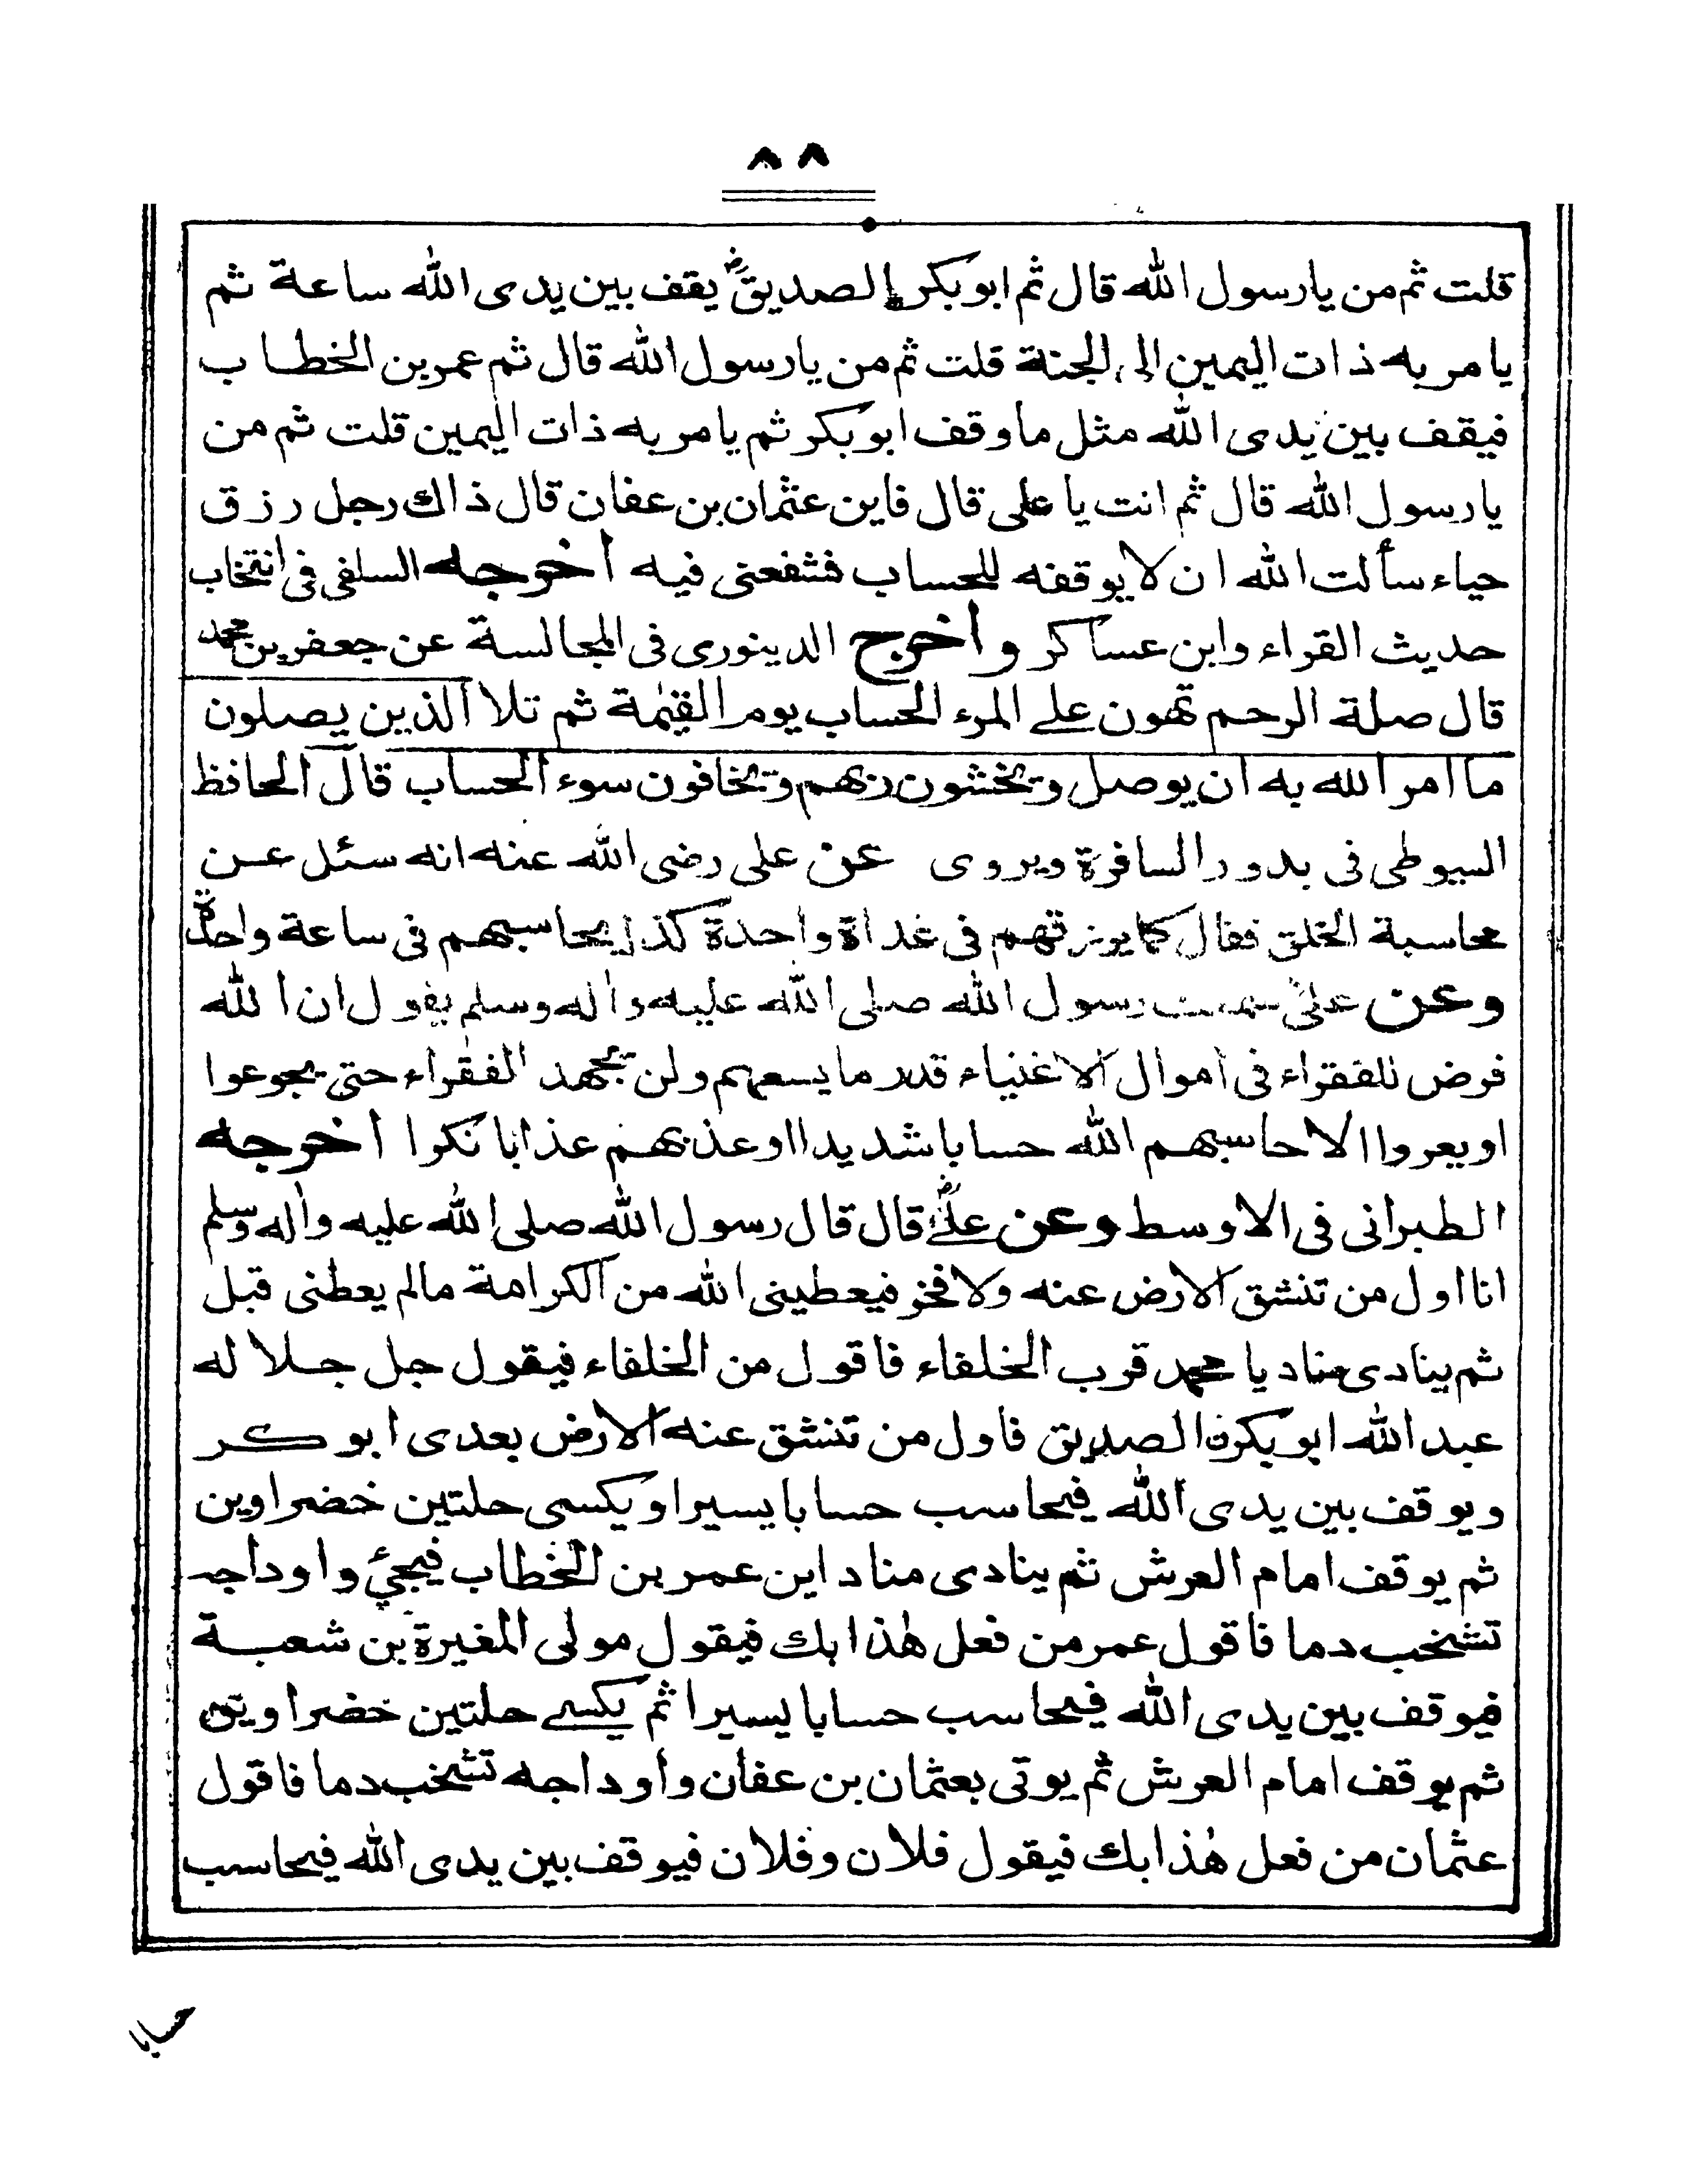 ٨٨
قلت ثم من يا رسول الله قال ثم ابو بكر الصديقؓ يقف بين يدى الله ساعة ثم
يامر به ذات اليمين الى الجنة قلت ثم من يا رسول الله قال ثم عمر بن الخطاب
فيقف بين يدى الله مثل ما وقف ابو بكر ثم يامر به ذات اليمين قلت ثم من
يا رسول الله قال ثم انت يا على قال فاين عثمان بن عفان قال ذاك رجل رزق
حياء سألت الله ان لا يوقفه للحساب فشفعنى فيه اخرجه السلفى فى انتخاب
حديث القراء وابن عساكر واخرج الدينورى فى المجالسة عن جعفر بن محمد
قال صلة الرحم تهون على المرء الحساب يوم القيٰمة ثم تلا الذين يصلون
ما امر الله به ان يوصل ويخشون ربهم ويخافون سوء الحساب قال الحافظ
السيوطى فى بدور السافرة ويروى عن على رضى الله عنه انه سئل عن
محاسبة الخلق فقال كما يرزقهم فى غداة واحدة كذا يحاسبهم فى ساعة واحدة
وعن علىؓ سمعت رسول الله صلى الله عليه واٰله وسلم يقول ان الله
فرض للفقراء فى اموال الاغنياء قدر ما يسعهم ولن تجهد الفقراء حتى يجوعوا
او يعروا الا حاسبهم الله حسابا شديدا اوعذبهم عذابا نكرا اخرجه
الطبرانى فى الاوسط وعن علىؓ قال قال رسول الله صلى الله عليه واٰله وسلم
انا اول من تنشق الارض عنه ولا فخر فيعطينى الله من الكرامة مالم يعطنى قبل
ثم ينادى مناد يا محمد قرب الخلفاء فاقول من الخلفاء فيقول جل جلاله
عبد الله ابو بكر الصديق فاول من تنشق عنه الارض بعدى ابو كر
ويوقف بين يدى الله فيحاسب حسابا يسيرا ويكسى حلتين خضراوين
ثم يوقف امام العرش ثم ينادى مناد اين عمر بن الخطاب فيجئ واوداجه
تشخب دما فاقول عمر من فعل هٰذا بك فيقول مولى المغيرة بن شعبة
فيوقف بين يدى الله فيحاسب حسابا يسيرا ثم يكسى حلتين خضراوين
ثم يوقف امام العرش ثم يوتى بعثمان بن عفان واوداجه تشخب دما فاقول
عثمان من فعل هٰذا بك فيقول فلان وفلان فيوقف بين يدى الله فيحاسب
حسابا